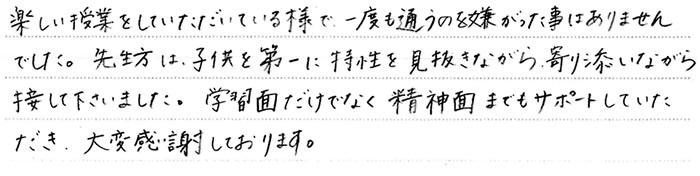 楽しい授業をしていただいている様で、一度も通うのを嫌がった事はありません
でした。先生方は、子供を第一に特性を見抜きながら、寄り添いながら
接して下さいました。学習面だけでなく精神面までもサポートしていた
だき、大変感謝しております。